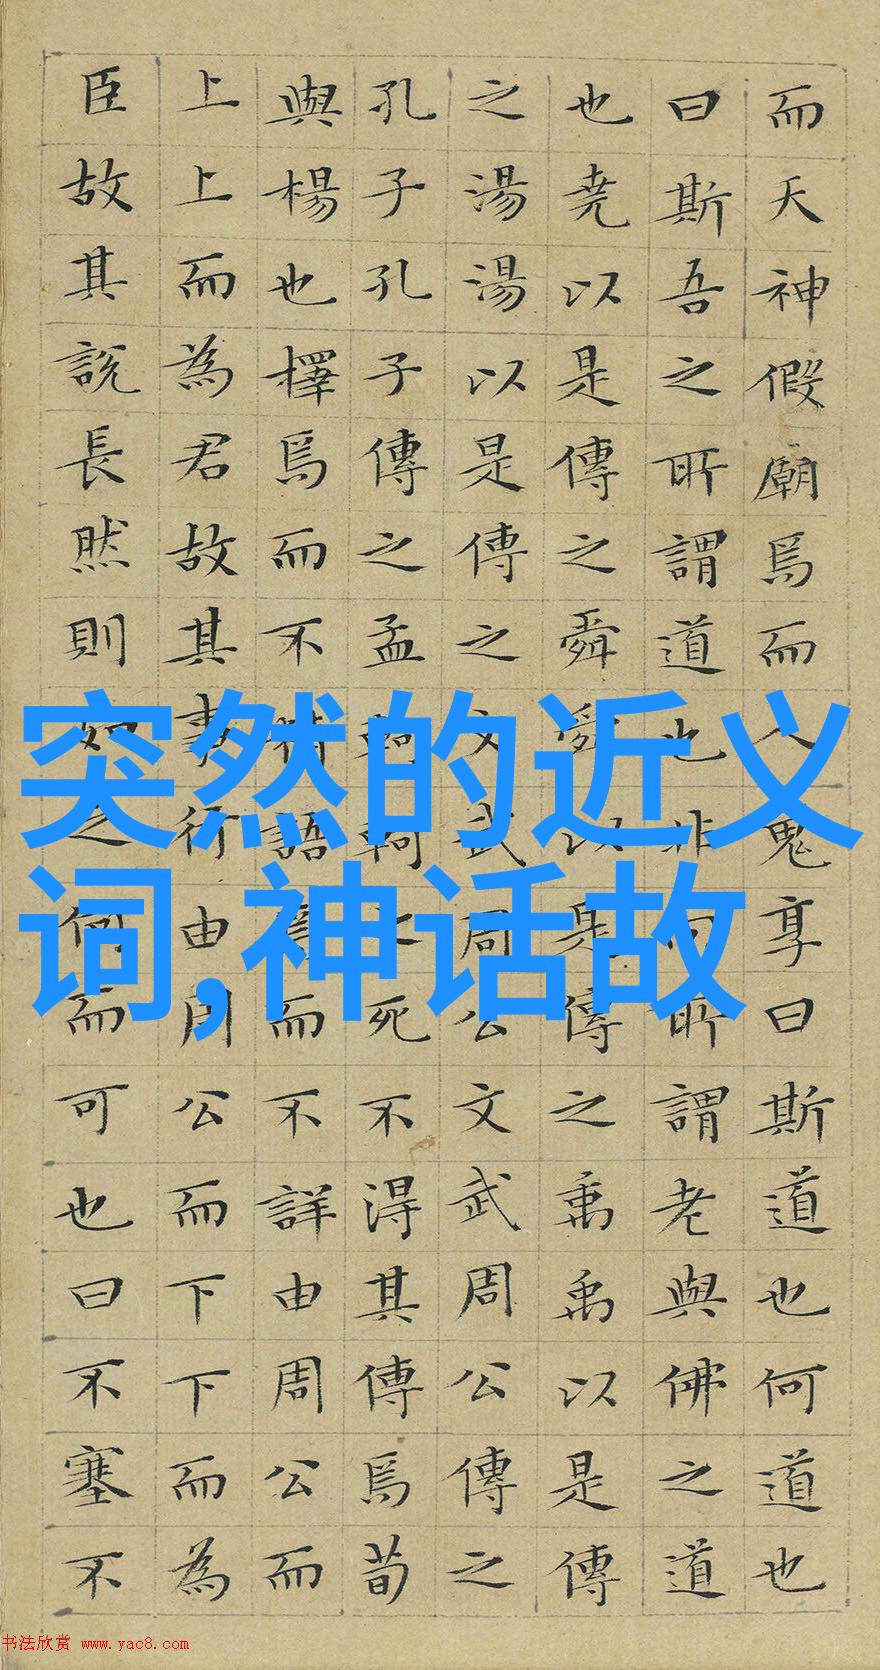 而天神假廟焉而人鬼享曰斯道也何道也
曰斯吾之所謂道也非向所謂老與佛之道
也堯以是傳之舜舜以是傳之禹禹以是傳
之湯湯以是傳之文武周公文武周公傳之
孔子孔子傳之孟軻軻之死不得其傳焉荀
與楊也擇焉而不精語焉而不詳由周公而
上上而為君故其事行由周公而下下而為
臣故其說長然則如之何而可也曰不塞不
突然的近义
词,神话故
书法欣赏 www.yac8.com